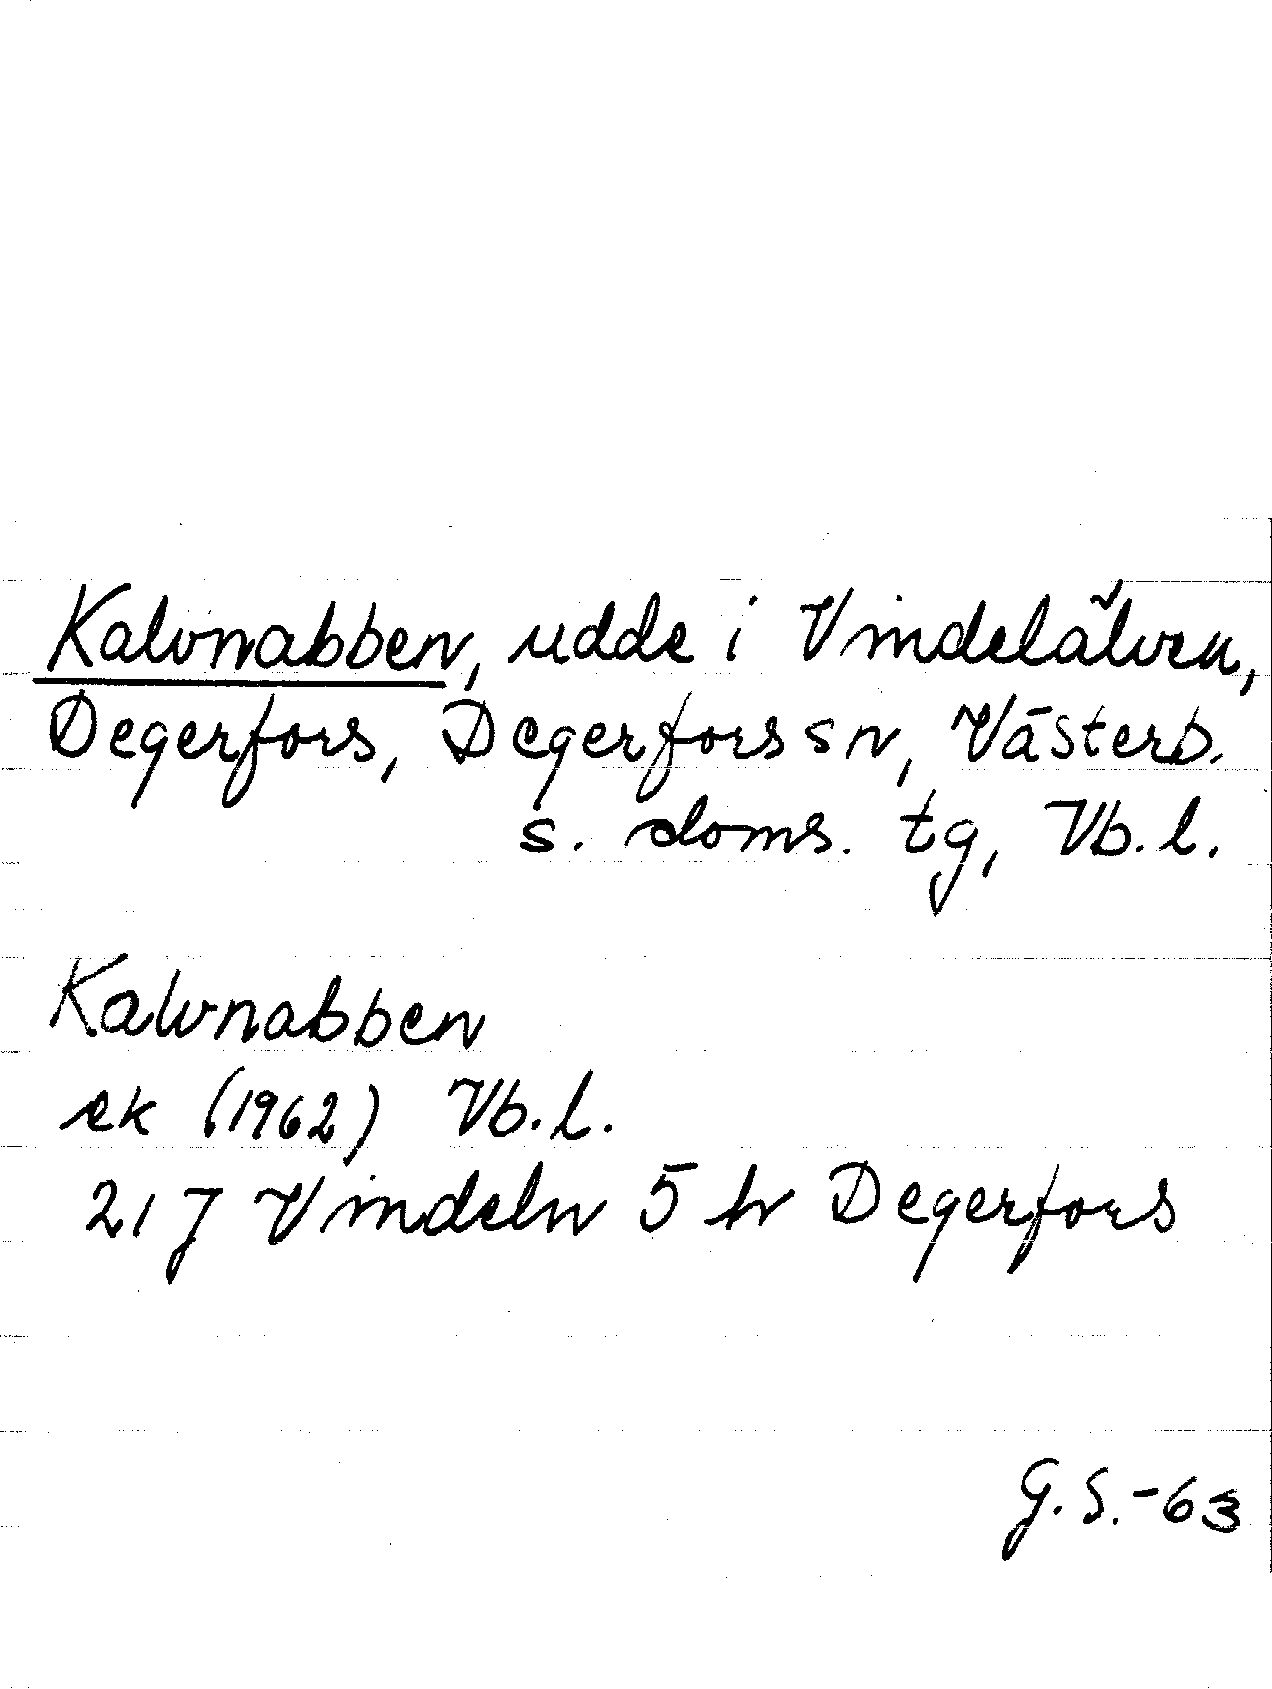 Kalvnabben, udde i Vindelälven,
Degerfors, Degerfors sn, Västerb.
s. doms. tg, Vb. l.
Kalvnabben
ek (1962) Vb. l.
21 J Vindeln 5 h Degerfors
G. S. -63